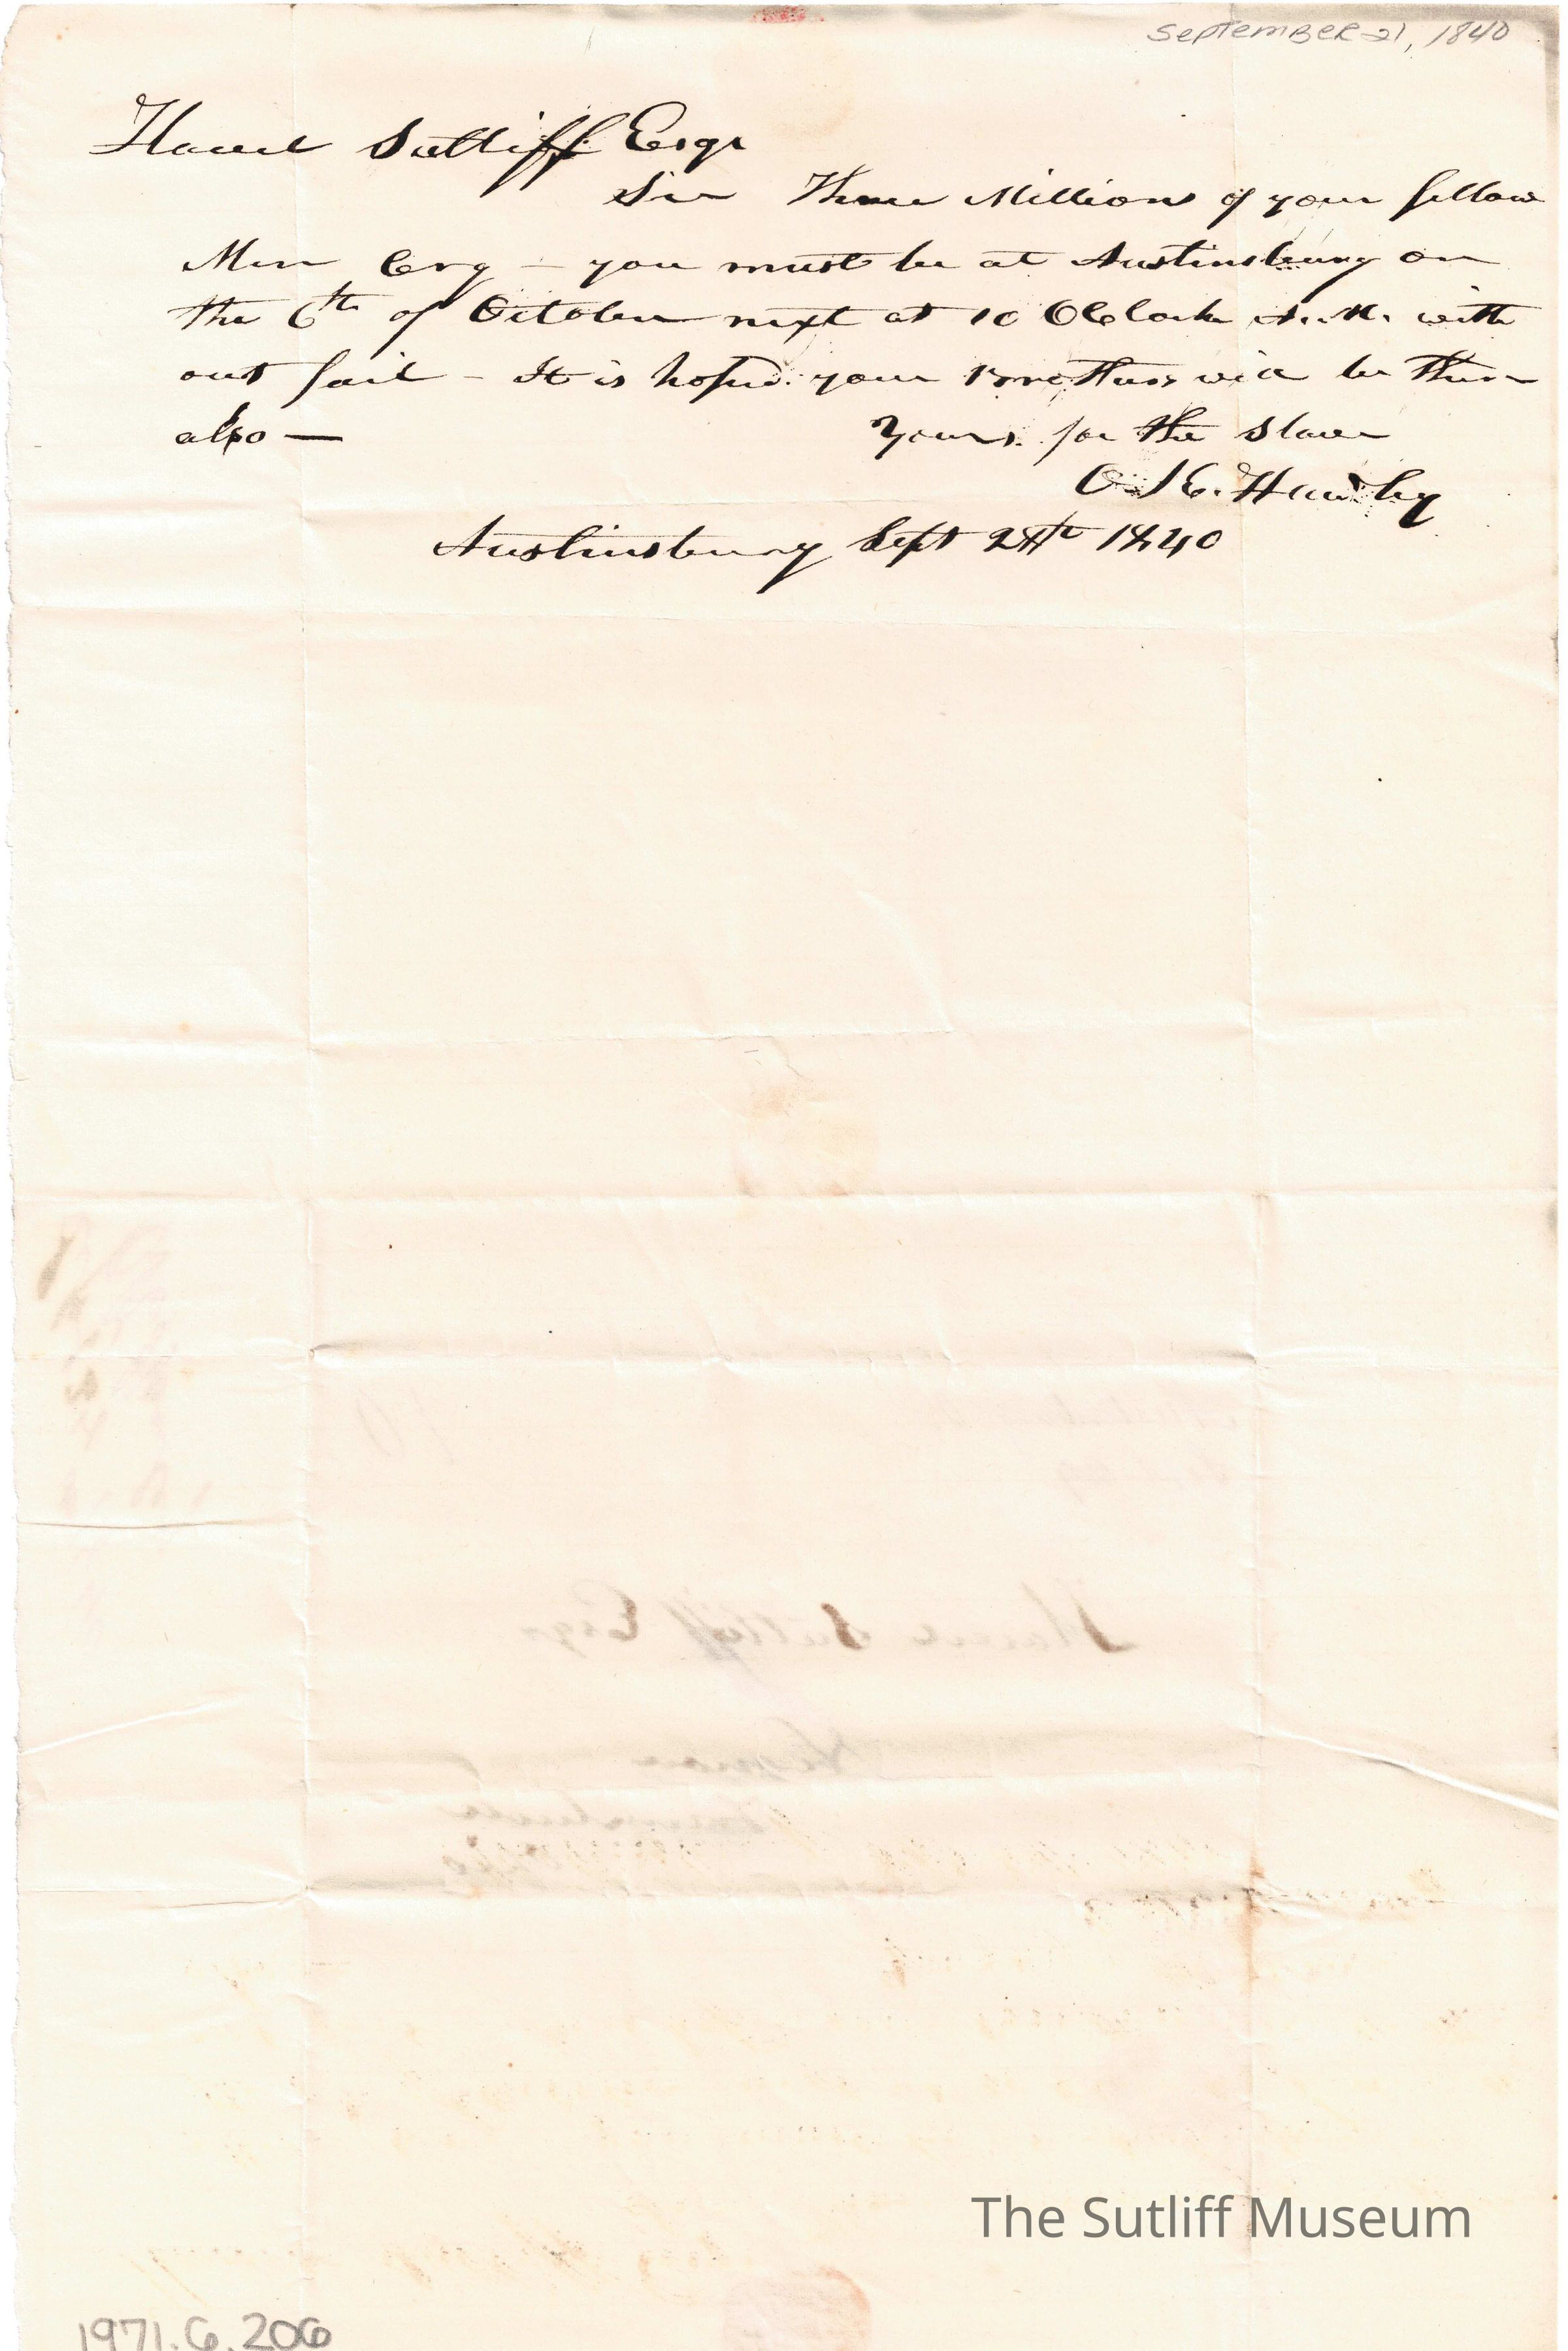 September 21, 1840
Flavel Sutliff Esqr
Sir Three Millions of your fellow
Men Cry - you must be at Austinburg on
the 6th of October next at 10 OClock A.M. with
out fail - It is hoped your Brothers will be there
also -
Yours for the Slave
O. K. Hawley
Austinsburg Sept 28th 1840
Flavel Sutliff Esqr
Vernon
Trumbull
The Sutliff Museum
1971.6.206